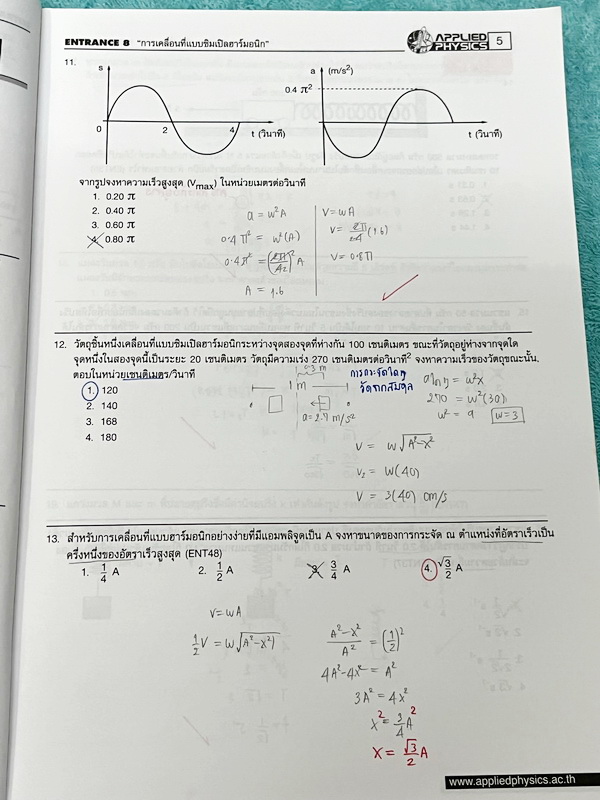 ENTRANCE 8 "การเคลื่อนที่แบบซิมเปิลฮาร์มอนิก"
APPLIED PHYSICS 5
11. s a (m/s²)
0.4 π²
0 2 4 t (วินาที) t (วินาที)
จากรูปจงหาความเร็วสูงสุด (Vmax) ในหน่วยเมตรต่อวินาที
1. 0.20 π
2. 0.40 π
3. 0.60 π
4. 0.80 π
a = ω²A
0.4π² = ω²(A)
0.4π² = (2π/4)² A
A = 1.6
V = ωA
V = 2π/4 (1.6)
V = 0.8π
12. วัตถุชิ้นหนึ่งเคลื่อนที่แบบซิมเปิลฮาร์มอนิกระหว่างจุดสองจุดที่ห่างกัน 100 เซนติเมตร ขณะที่วัตถุอยู่ห่างจากจุดใด
จุดหนึ่งในสองจุดนี้เป็นระยะ 20 เซนติเมตร วัตถุมีความเร่ง 270 เซนติเมตรต่อวินาที² จงหาความเร็วของวัตถุขณะนั้น
ตอบในหน่วยเซนติเมตร/วินาที
1. 120
2. 140
3. 168
4. 180
0.3 m
1 m
a = 2.7 m/s²
การกระจัดใดๆ
วัดจากสมดุล
aใดๆ = ω²x
270 = ω²(30)
ω² = 9 ω = 3
V = ω√A²-x²
V₂ = ω(40)
V = 3(40) cm/s
13. สำหรับการเคลื่อนที่แบบฮาร์มอนิกอย่างง่ายที่มีแอมพลิจูดเป็น A จงหาขนาดของการกระจัด ณ ตำแหน่งที่อัตราเร็วเป็น
ครึ่งหนึ่งของอัตราเร็วสูงสุด (ENT48)
1. 1/4 A 2. 1/2 A 3. 3/4 A 4. √3/2 A
V = ωA
1/2 V = ω√(A²-x²)
A²-x²/A² = (1/2)²
4A²-4x² = A²
3A² = 4x²
x² = 3/4 A²
x = √3/2 A
www.appliedphysics.ac.th